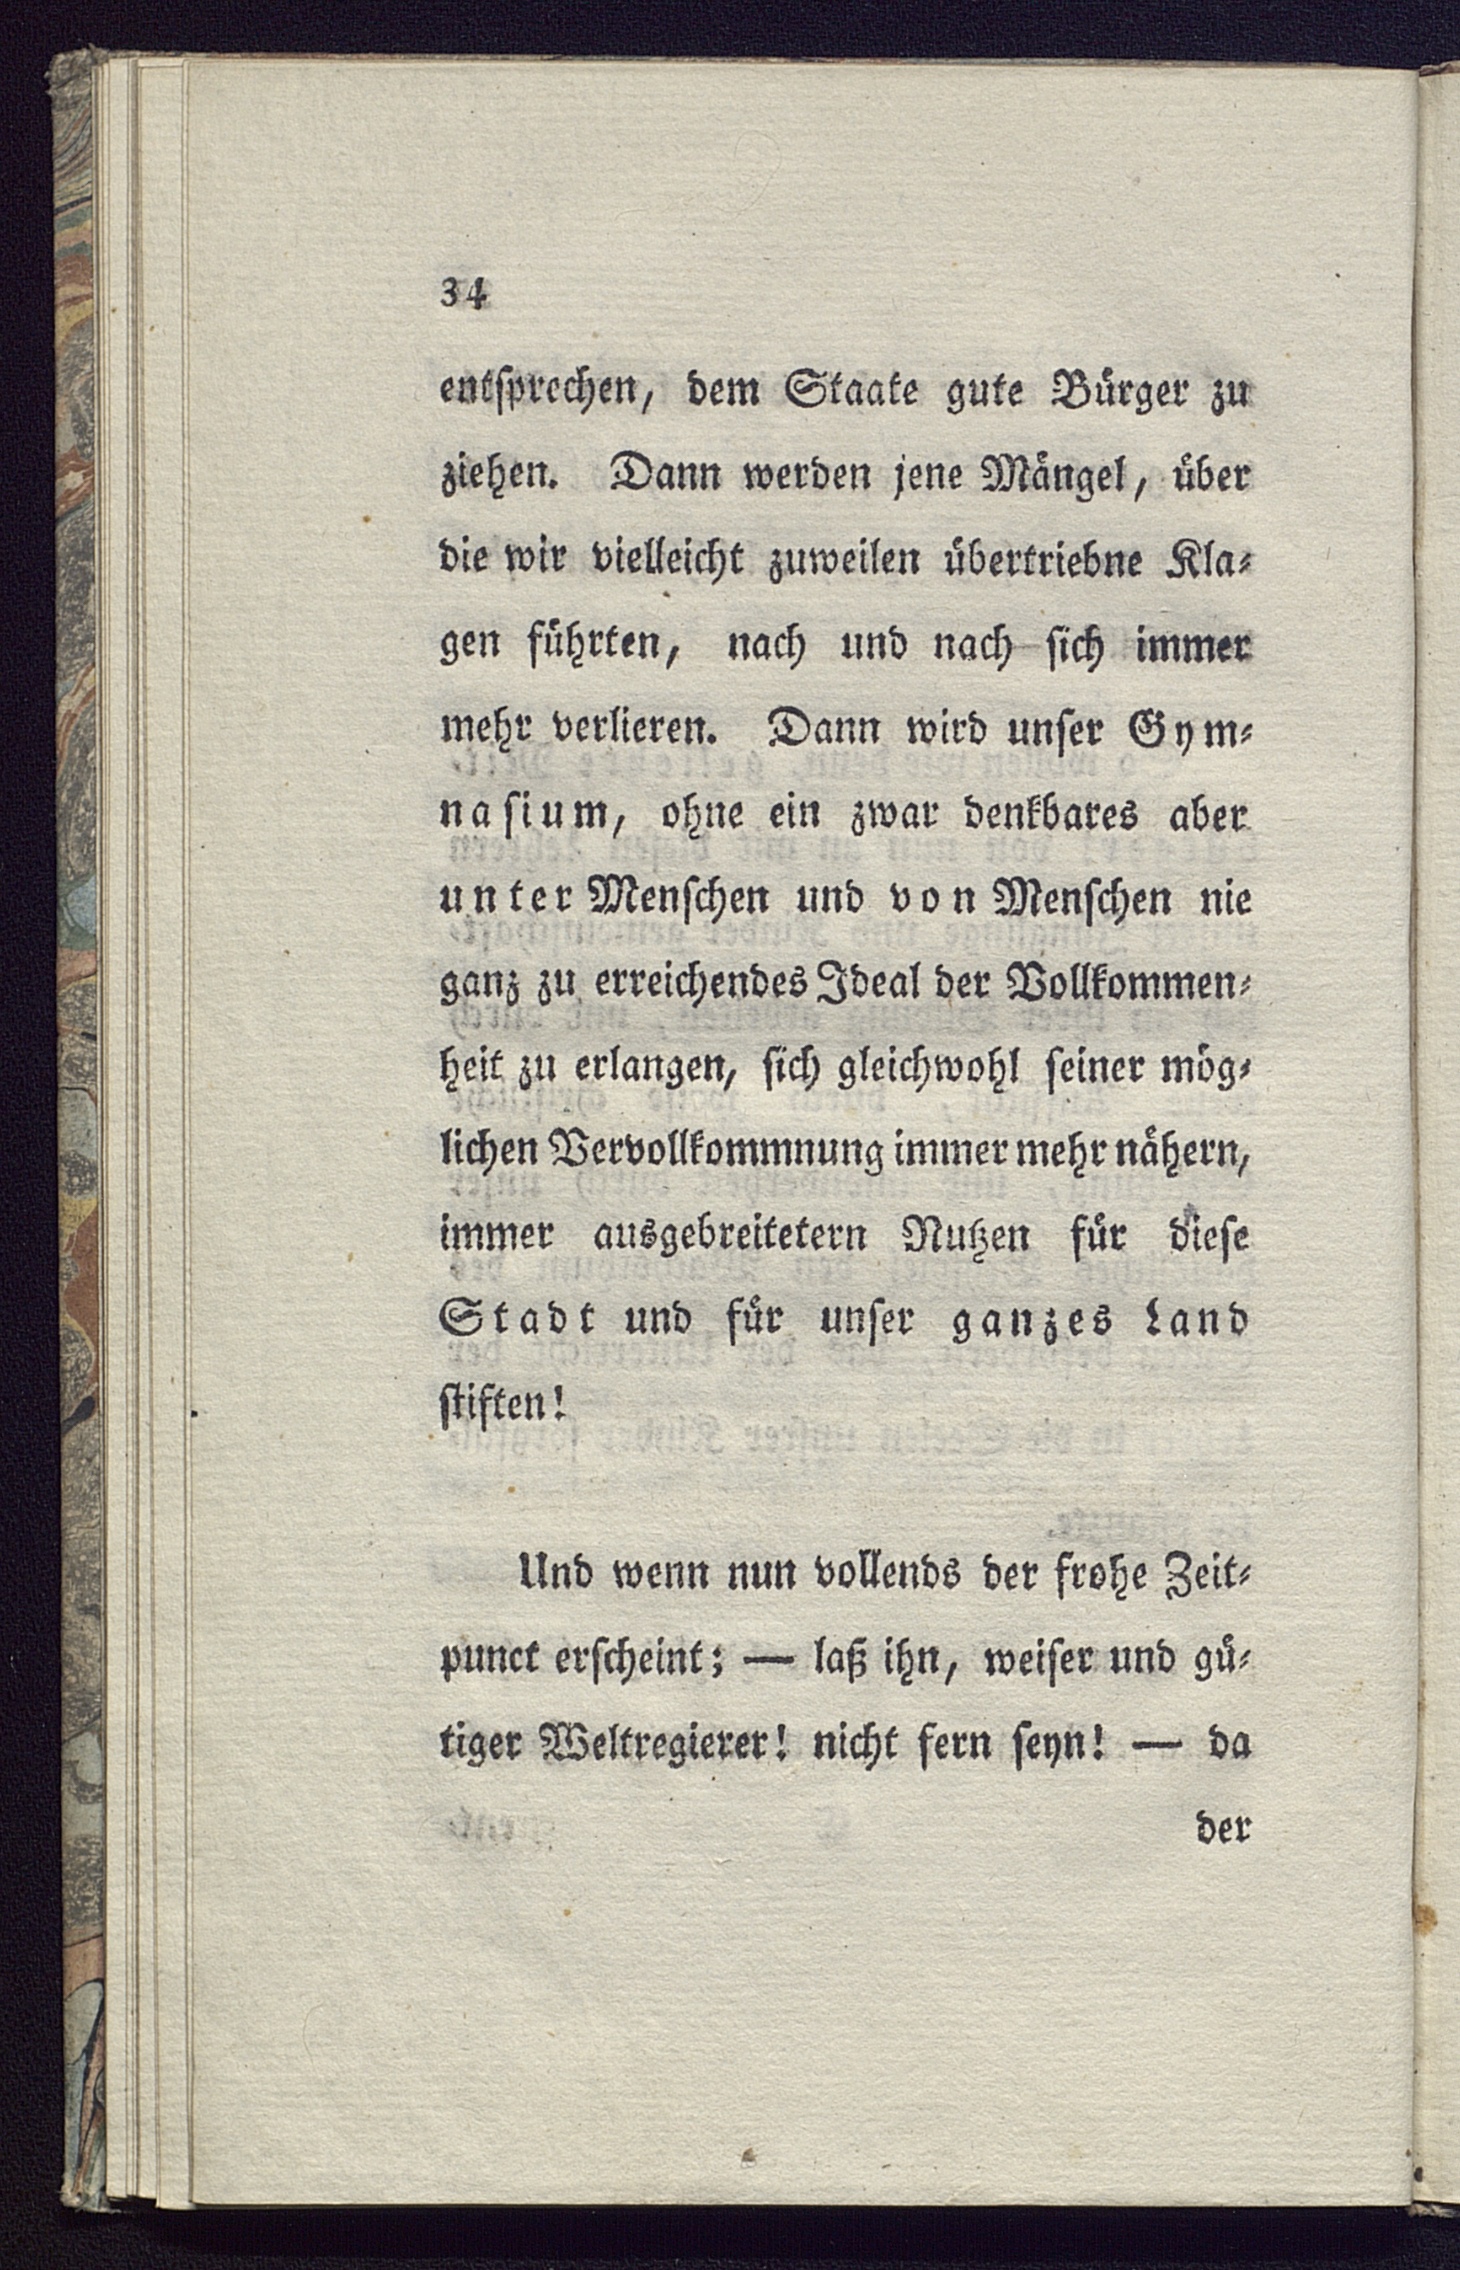 34
entsprechen, dem Staate gute Bürger zu
ziehen. Dann werden jene Mängel, über
die wir vielleicht zuweilen übertriebne Kla-
gen führten, nach und nach sich immer
mehr verlieren. Dann wird unser Gym-
nasium, ohne ein zwar denkbares aber
unter Menschen und von Menschen nie
ganz zu erreichendes Ideal der Vollkommen-
heit zu erlangen, sich gleichwohl seiner mög-
lichen Vervollkommnung immer mehr nähern,
immer ausgebreitetern Nutzen für diese
Stadt und für unser ganzes Land
stiften!
Und wenn nun vollends der frohe Zeit-
punct erscheint; — laß ihn, weiser und gü-
tiger Weltregierer! nicht fern seyn! — da
der